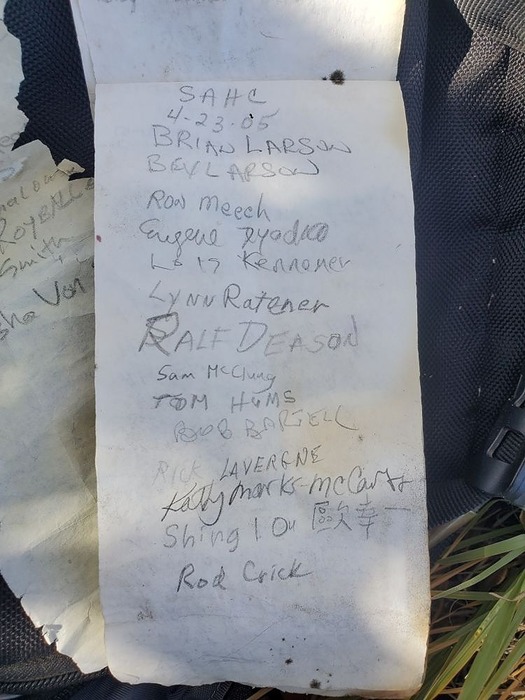 SAHC
4-23-05
BRIAN LARSON
BEV LARSON
Ron Meech
Eugene
Kennomer
LYNN Ratener
RALF DEASON
Sam McClung
TOM HUMS
BOB BARTELL
RICK LAVERGNE
Kathy Marks-McCarty
Shing I Ou 歐幸一
Rod Crick
ROYBALL
Smith
Von